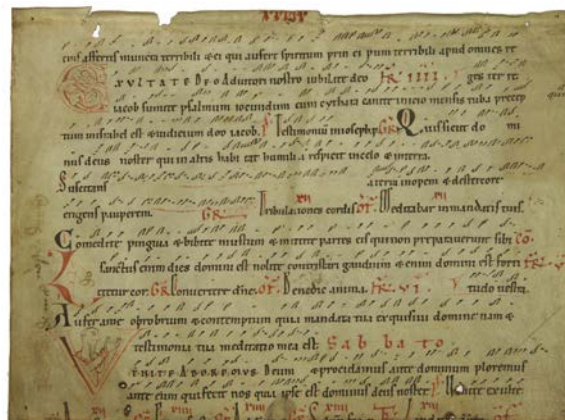 eius afferetis munera terribili & ei qui aufert spiritum prin ci pum terribili apud omnes re
EXULTATE DEO Adiutori nostro iubilate deo fr IIII ges ter re
iacob sumite psalmum iocundum cum cythara canite inicio mensis tuba precep
tum in israhel est & iudicium deo iacob. Testimoniū in ioseph. GR Quis sicut do mi
nus deus noster qui in altis habi tat humilia respicit in celo & in terra.
Suscitans a terra inopem & de stercore
erigens pauperem. GR Tribulationes cordis. OF Meditabar in mandatis tuis.
Comedite pinguia & bibite mustum & mittite partes eis qui non preparaverunt sibi CO
sanctus enim dies domini est nolite contristari gaudium & enim domini est forti
tetur cor. GR Convertere dñe. OF Benedic anima. fr VI tudo nostra.
Aufer a me obprobrium & contemptum quia mandata tua exquisivi domine nam &
testimonia tua meditatio mea est Sabbato
VENITE ADOREMUS Deum & procidamus ante dominum ploremus
ante eum qui fecit nos quia ipse est dominus deus noster Venite exulte